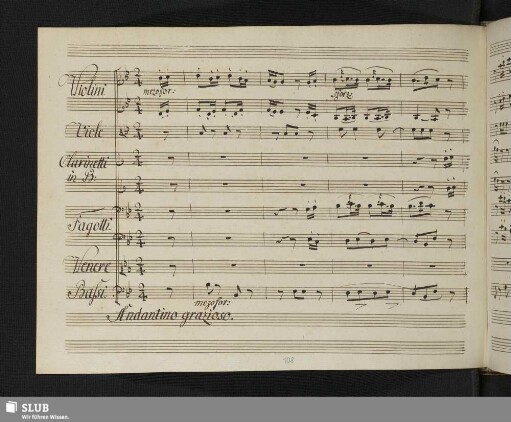 Violini
mezofor:
sforz
Viole
Clarinetti
in B:
Fagotti.
Venere
Bassi.
mezofor:
Andantino grazioso.
SLUB
Wir führen Wissen.